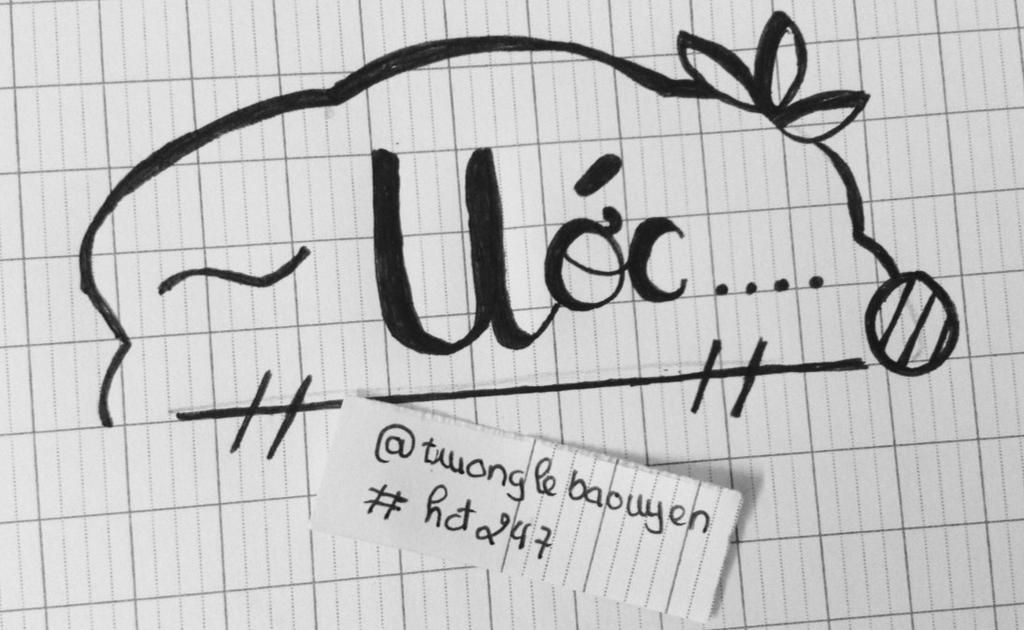 ~ Ước....
@truonglebaouyen
# hct247